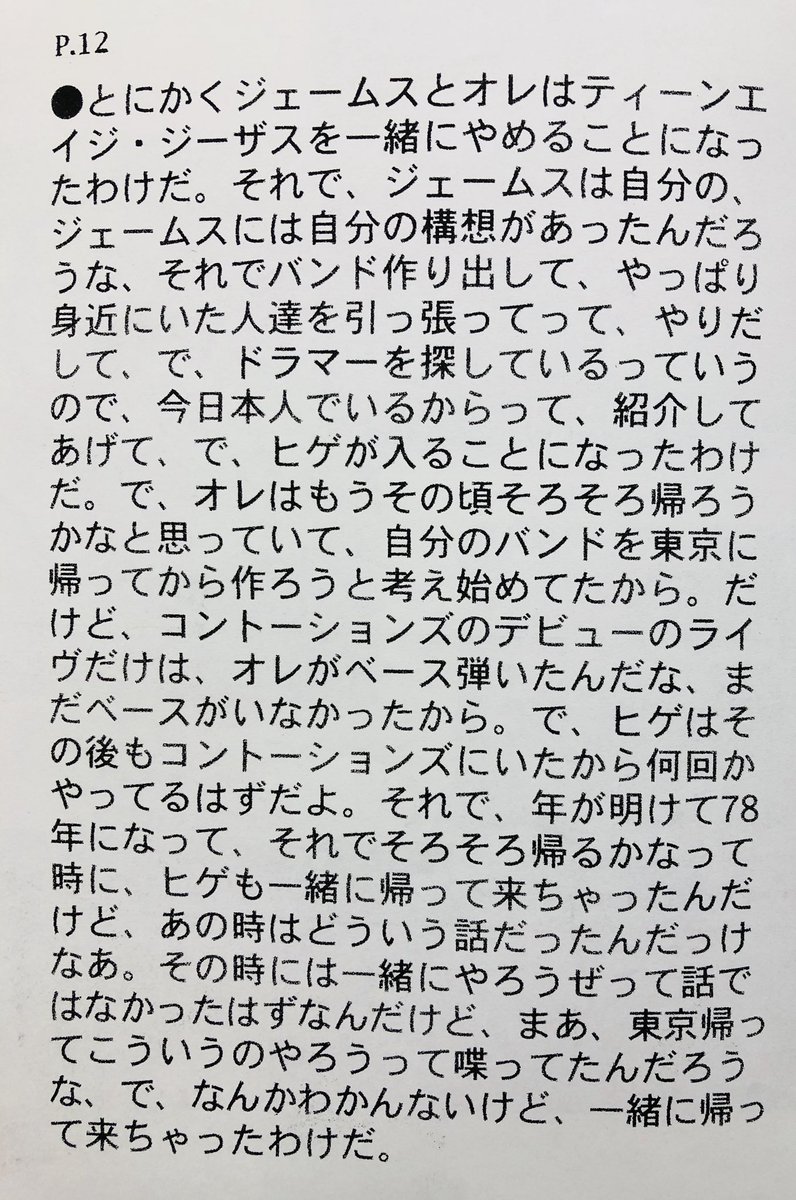 P.12
●とにかくジェームスとオレはティーンエ
イジ・ジーザスを一緒にやめることになっ
たわけだ。それで、ジェームスは自分の、
ジェームスには自分の構想があったんだろ
うな、それでバンド作り出して、やっぱり
身近にいた人達を引っ張ってって、やりだ
して、で、ドラマーを探しているっていう
ので、今日本人でいるからって、紹介して
あげて、で、ヒゲが入ることになったわけ
だ。で、オレはもうその頃そろそろ帰ろう
かなと思っていて、自分のバンドを東京に
帰ってから作ろうと考え始めてたから。だ
けど、コントーションズのデビューのライ
ヴだけは、オレがベース弾いたんだな、ま
だベースがいなかったから。で、ヒゲはそ
の後もコントーションズにいたから何回か
やってるはずだよ。それで、年が明けて78
年になって、それでそろそろ帰るかなって
時に、ヒゲも一緒に帰って来ちゃったんだ
けど、あの時はどういう話だったんだっけ
なあ。その時には一緒にやろうぜって話で
はなかったはずなんだけど、まあ、東京帰っ
てこういうのやろうって喋ってたんだろう
な、で、なんかわかんないけど、一緒に帰っ
て来ちゃったわけだ。